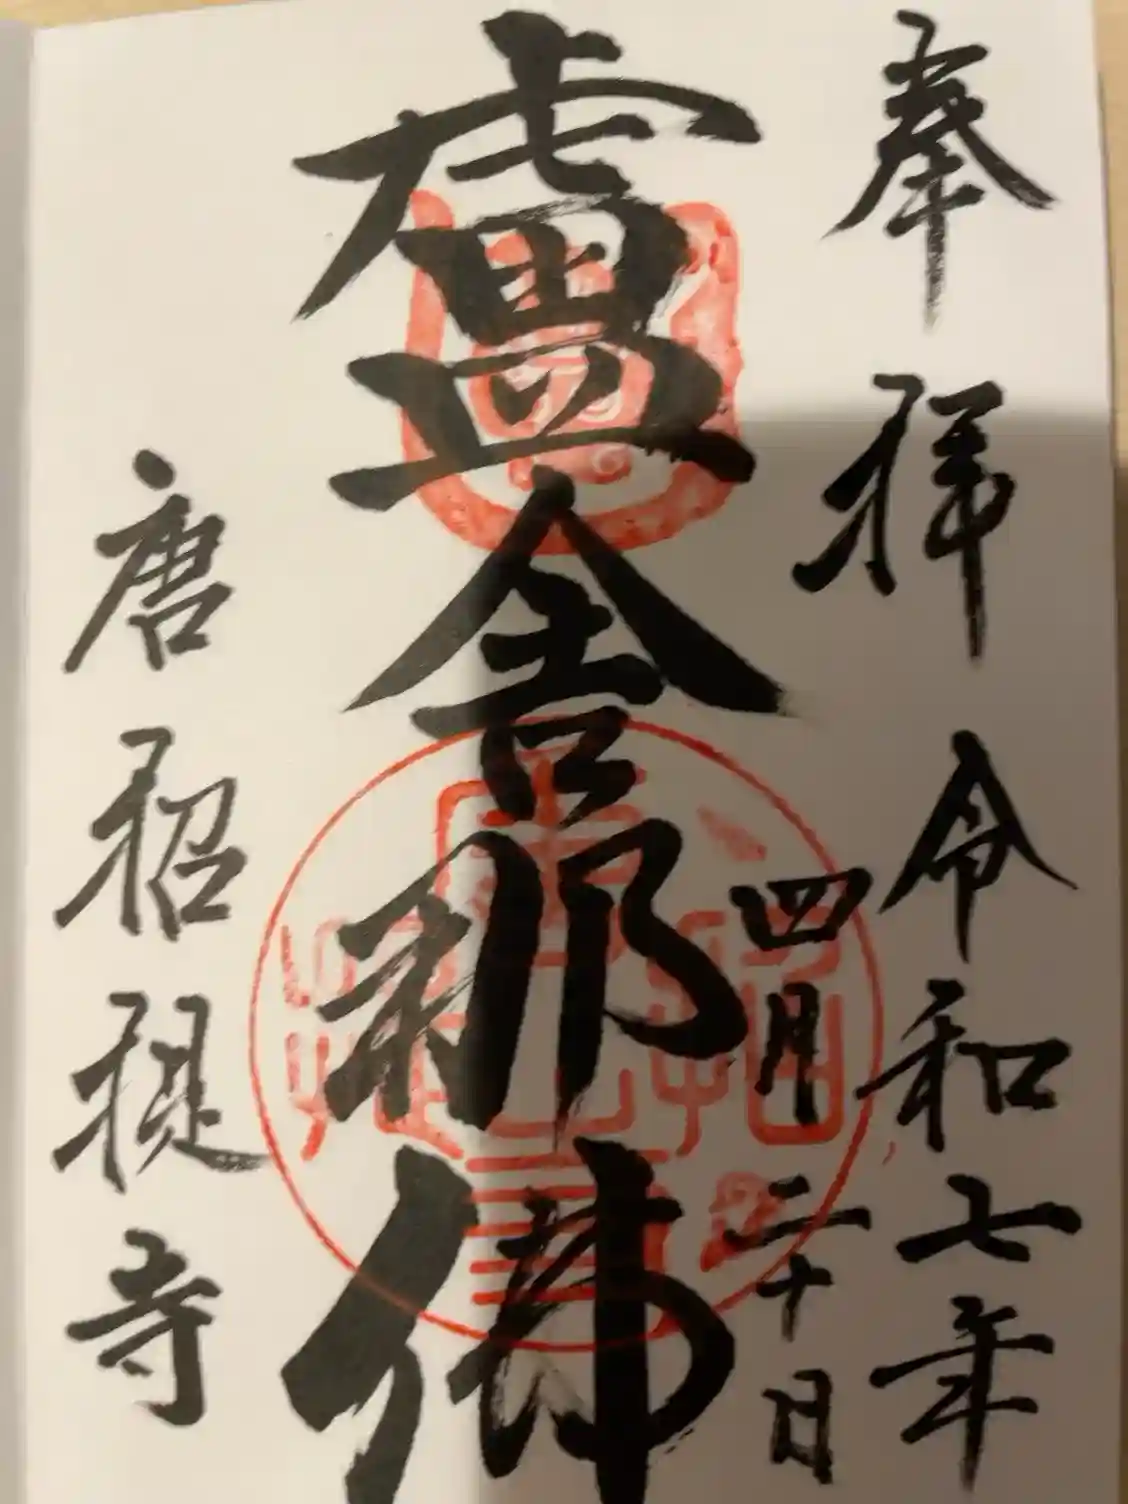 奉拝
令和七年
四月二十日
盧舎那佛
唐招提寺